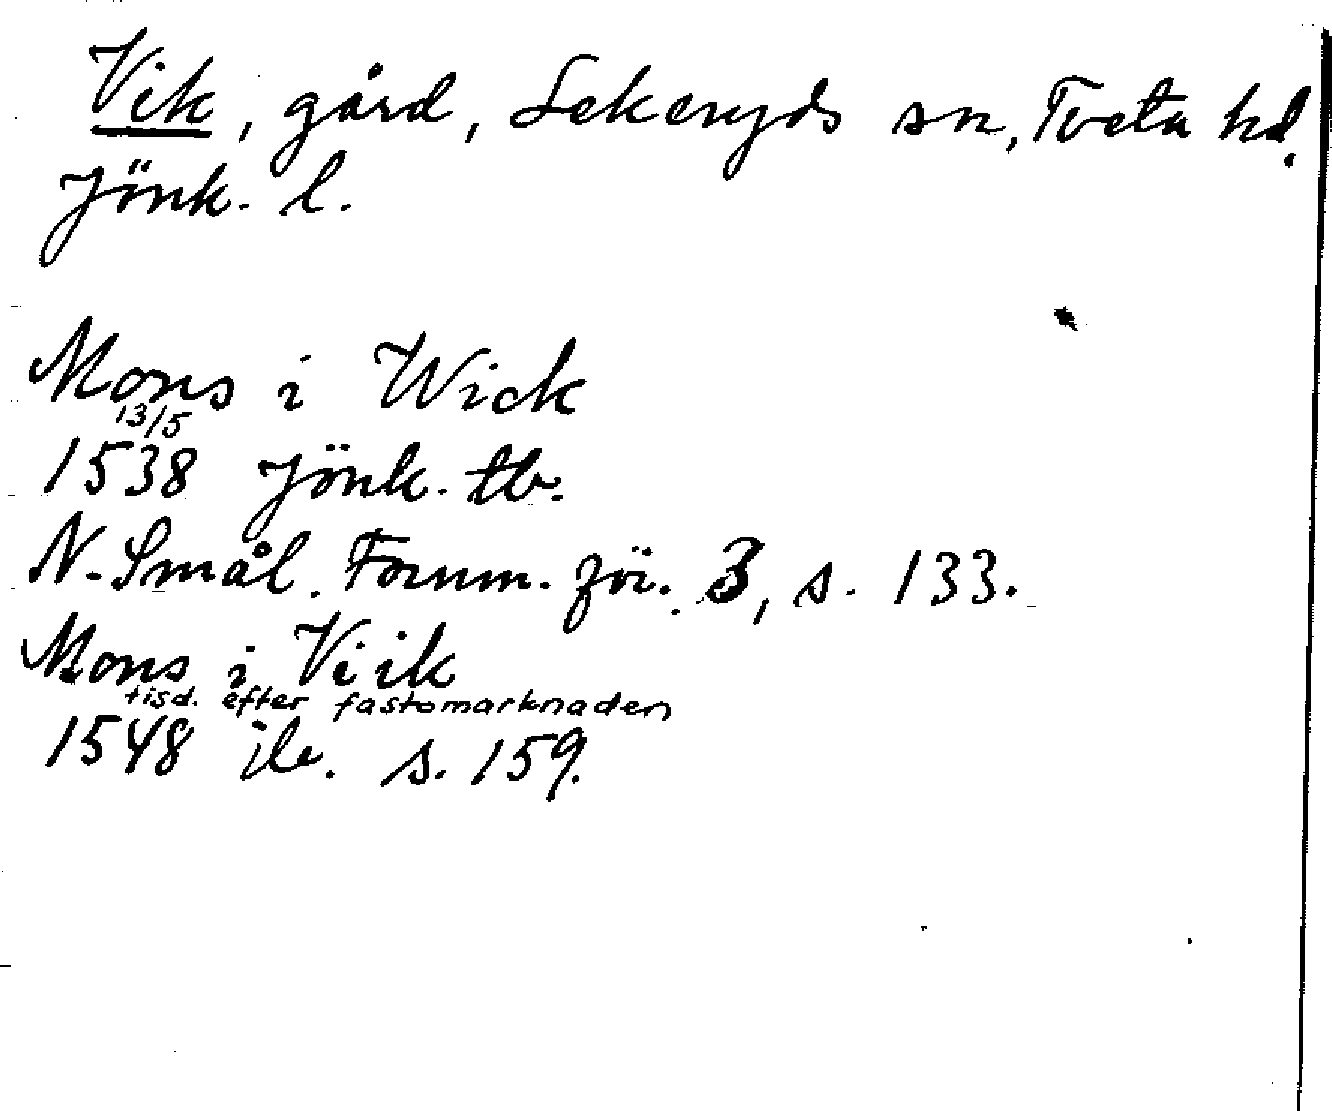 Vik, gård, Lekeryds sn, Tveta hd.
Jönk. l.
Mons i Wick
13/5
1538 Jönk. tb.
N. Smål. Fornm. för. 3, s. 133.
Mons i Viik
tisd. efter fastomarknaden
1548 ib. s. 159.